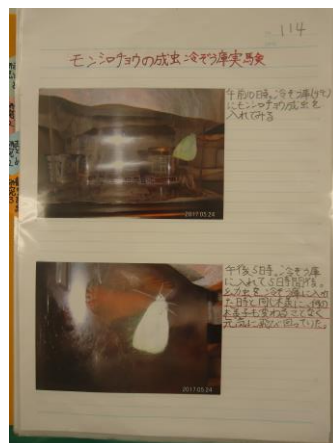 114
モンシロチョウの成虫 冷ぞう庫実験
午前10時、冷ぞう庫(4℃)
にモンシロチョウ成虫を
入れてみる
2017 05 24
午後5時、冷ぞう庫
に入れて
を冷ぞう庫に入れ
た時と同じ様に、何の
様子も変わることなく
元気に飛び回っていた。
2017 05 24